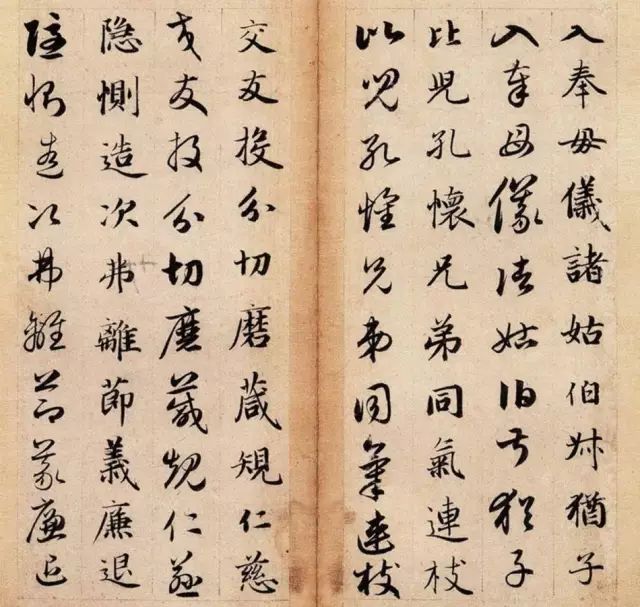 入奉母儀諸姑伯叔猶子
入奉母儀諸姑伯叔猶子
比兒孔懷兄弟同氣連枝
比兒孔懷兄弟同氣連枝
交友投分切磨箴規仁慈
交友投分切磨箴規仁慈
隐惻造次弗離節義廉退
隐惻造次弗離節義廉退